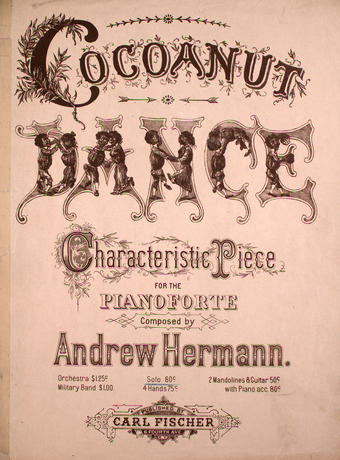 COCOANUT
DANCE
Characteristic Piece
FOR THE
PIANOFORTE
Composed by
Andrew Hermann.
Orchestra $1.25¢ Solo 60¢ 2 Mandolines & Guitar 50¢
Military Band $1.00. 4 Hands 75¢ with Piano acc. 80¢
PUBLISHED BY
CARL FISCHER
6 FOURTH AVE.
N.Y.